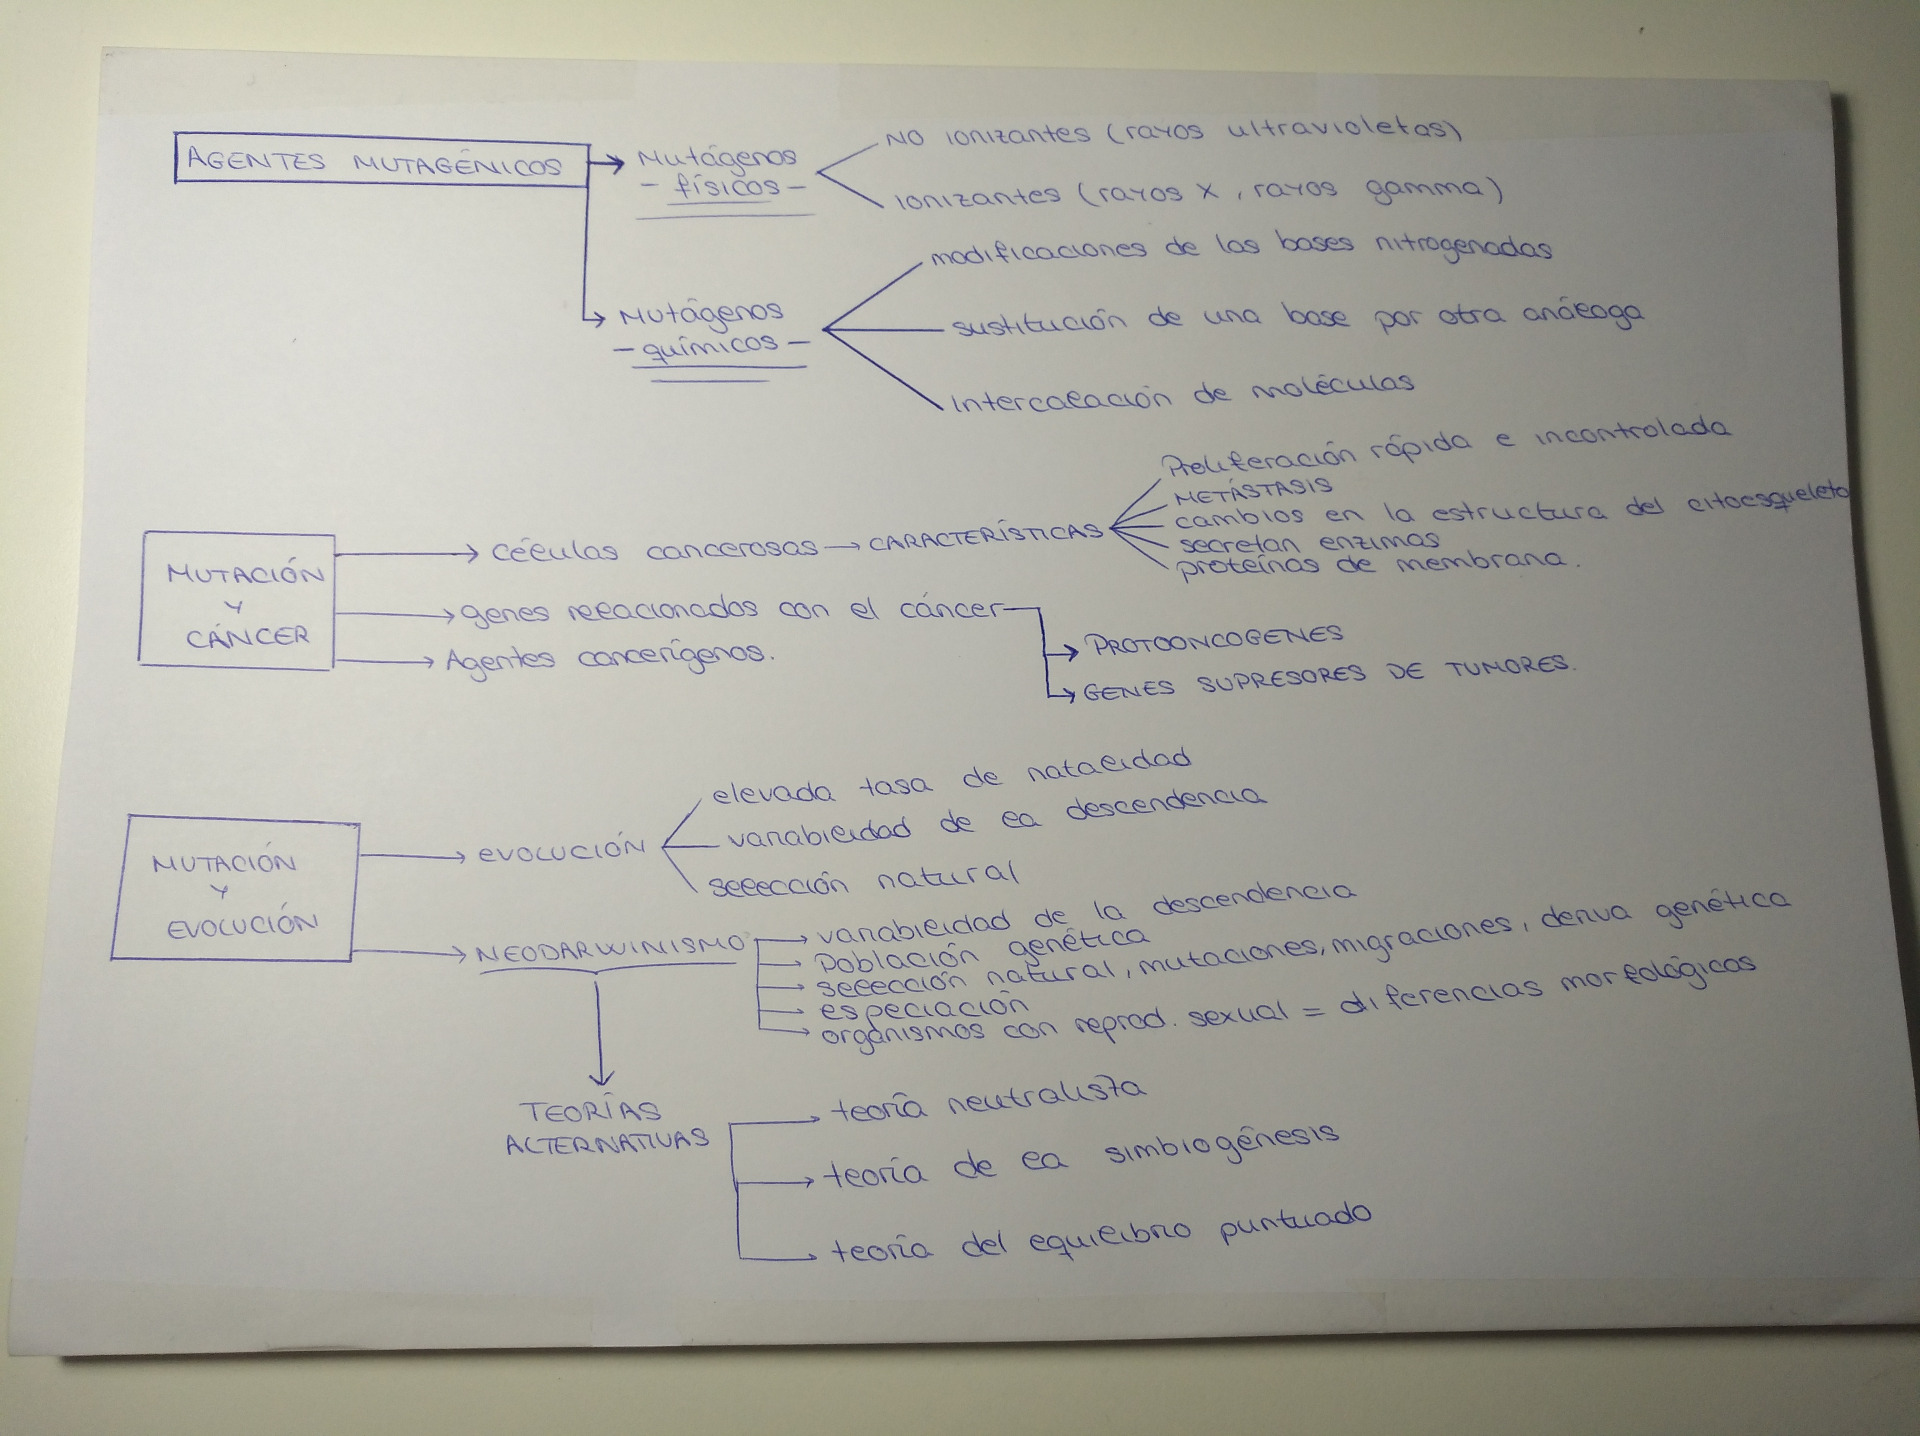 AGENTES MUTAGÉNICOS
Mutágenos
- físicos -
NO ionizantes (rayos ultravioletas)
ionizantes (rayos X, rayos gamma)
Mutágenos
- químicos -
modificaciones de las bases nitrogenadas
sustitución de una base por otra análoga
intercalación de moléculas
MUTACIÓN
Y
CÁNCER
células cancerosas → CARACTERÍSTICAS
Proliferación rápida e incontrolada
METÁSTASIS
cambios en la estructura del citoesqueleto
secretan enzimas
proteínas de membrana.
genes relacionados con el cáncer
PROTOONCOGENES
GENES SUPRESORES DE TUMORES.
Agentes cancerígenos.
MUTACIÓN
Y
EVOLUCIÓN
EVOLUCIÓN
elevada tasa de natalidad
variabilidad de la descendencia
selección natural
NEODARWINISMO
variabilidad de la descendencia
población genética
selección natural, mutaciones, migraciones, deriva genética
especiación
organismos con reprod. sexual = diferencias morfológicas
TEORÍAS
ALTERNATIVAS
teoría neutralista
teoría de la simbiogénesis
teoría del equilibrio puntuado